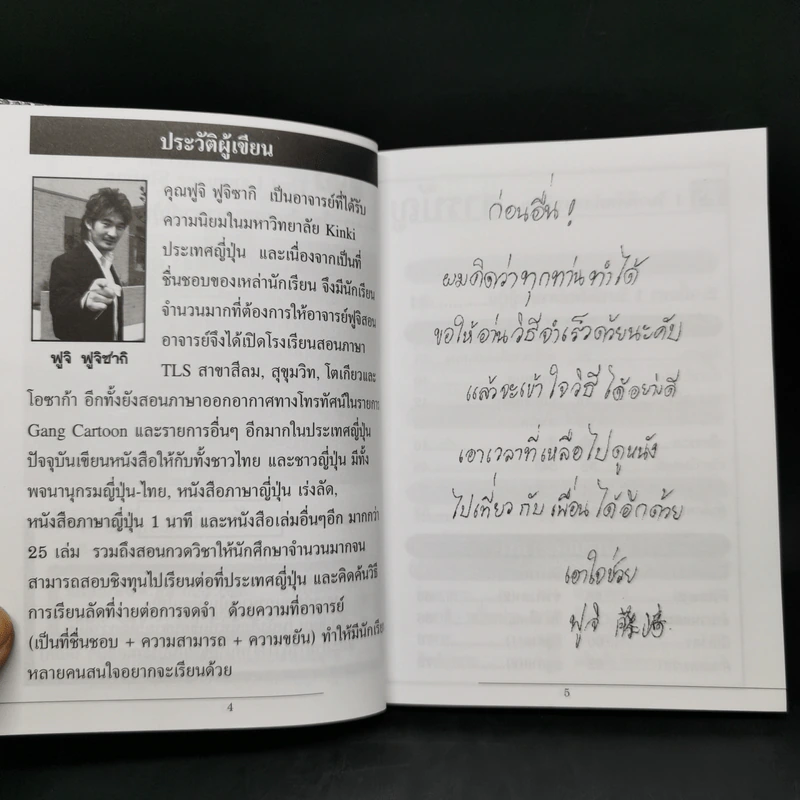 ประวัติผู้เขียน
ฟูจิ ฟูจิซากิ
คุณฟูจิ ฟูจิซากิ เป็นอาจารย์ที่ได้รับ
ความนิยมในมหาวิทยาลัย Kinki
ประเทศญี่ปุ่น และเนื่องจากเป็นที่
ชื่นชอบของเหล่านักเรียน จึงมีนักเรียน
จำนวนมากที่ต้องการให้อาจารย์ฟูจิสอน
อาจารย์จึงได้เปิดโรงเรียนสอนภาษา
TLS สาขาสีลม, สุขุมวิท, โตเกียวและ
โอซาก้า อีกทั้งยังสอนภาษาออกอากาศทางโทรทัศน์ในรายการ
Gang Cartoon และรายการอื่นๆ อีกมากในประเทศญี่ปุ่น
ปัจจุบันเขียนหนังสือให้กับทั้งชาวไทย และชาวญี่ปุ่น มีทั้ง
พจนานุกรมญี่ปุ่น-ไทย, หนังสือภาษาญี่ปุ่น เร่งลัด,
หนังสือภาษาญี่ปุ่น 1 นาที และหนังสือเล่มอื่นๆอีก มากกว่า
25 เล่ม รวมถึงสอนกวดวิชาให้นักศึกษาจำนวนมากจน
สามารถสอบชิงทุนไปเรียนต่อที่ประเทศญี่ปุ่น และคิดค้นวิธี
การเรียนลัดที่ง่ายต่อการจดจำ ด้วยความที่อาจารย์
(เป็นที่ชื่นชอบ + ความสามารถ + ความขยัน) ทำให้มีนักเรียน
หลายคนสนใจอยากจะเรียนด้วย
4
ก่อนอื่น!
ผมคิดว่าทุกท่านทำได้
ขอให้อ่านวิธีจำเร็วด้วยนะคับ
แล้วจะเข้าใจวิธีได้อย่างดี
เอาเวลาที่เหลือไปดูหนัง
ไปเที่ยวกับเพื่อนได้อีกด้วย
เอาใจช่วย
ฟูจิ
5